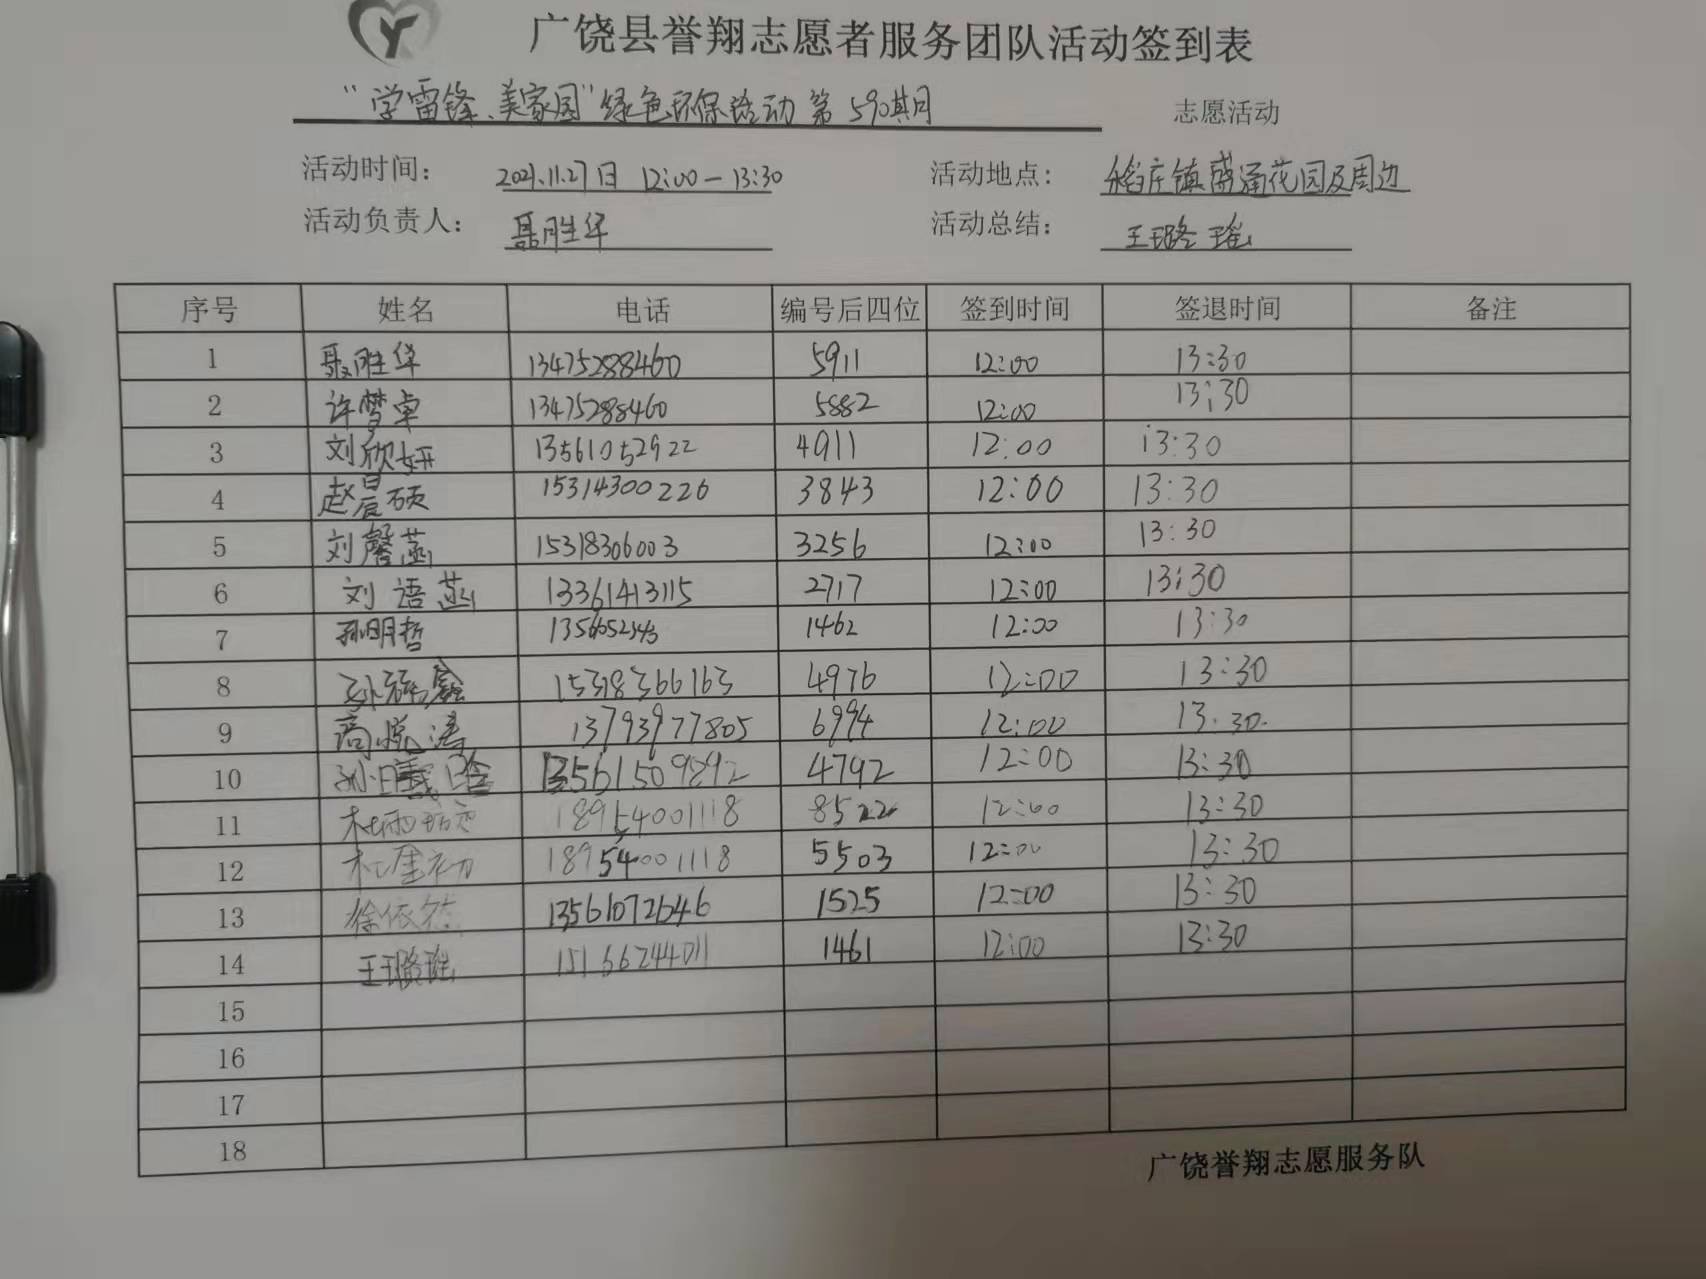 广饶县誉翔志愿者服务团队活动签到表
"学雷锋、美家园"绿色环保活动 第590期 志愿活动
活动时间: 2021.11.27日 12:00-13:30 活动地点: 稻庄镇盛通花园及周边
活动负责人: 聂胜华 活动总结: 王璐瑶
序号 姓名 电话 编号后四位 签到时间 签退时间 备注
1 聂胜华 13475288460 5911 12:00 13:30
2 许梦卓 13475288460 5882 12:00 13:30
3 刘欣妍 13561052922 4911 12:00 13:30
4 赵晨硕 15314300226 3843 12:00 13:30
5 刘馨菡 15318306003 3256 12:00 13:30
6 刘语菡 13361413115 2717 12:00 13:30
7 孙明哲 1462 12:00 13:30
8 15318366163 4976 12:00 13:30
9 商悦涛 13793977805 6994 12:00 13.30.
10 13561509892 4792 12:00 13:30
11 18954001118 8522 12:00 13:30
12 18954001118 5503 12:00 13:30
13 徐依然 13561072646 1525 12:00 13:30
14 王璐瑶 15166244011 1461 12:00 13:30
15
16
17
18
广饶誉翔志愿服务队